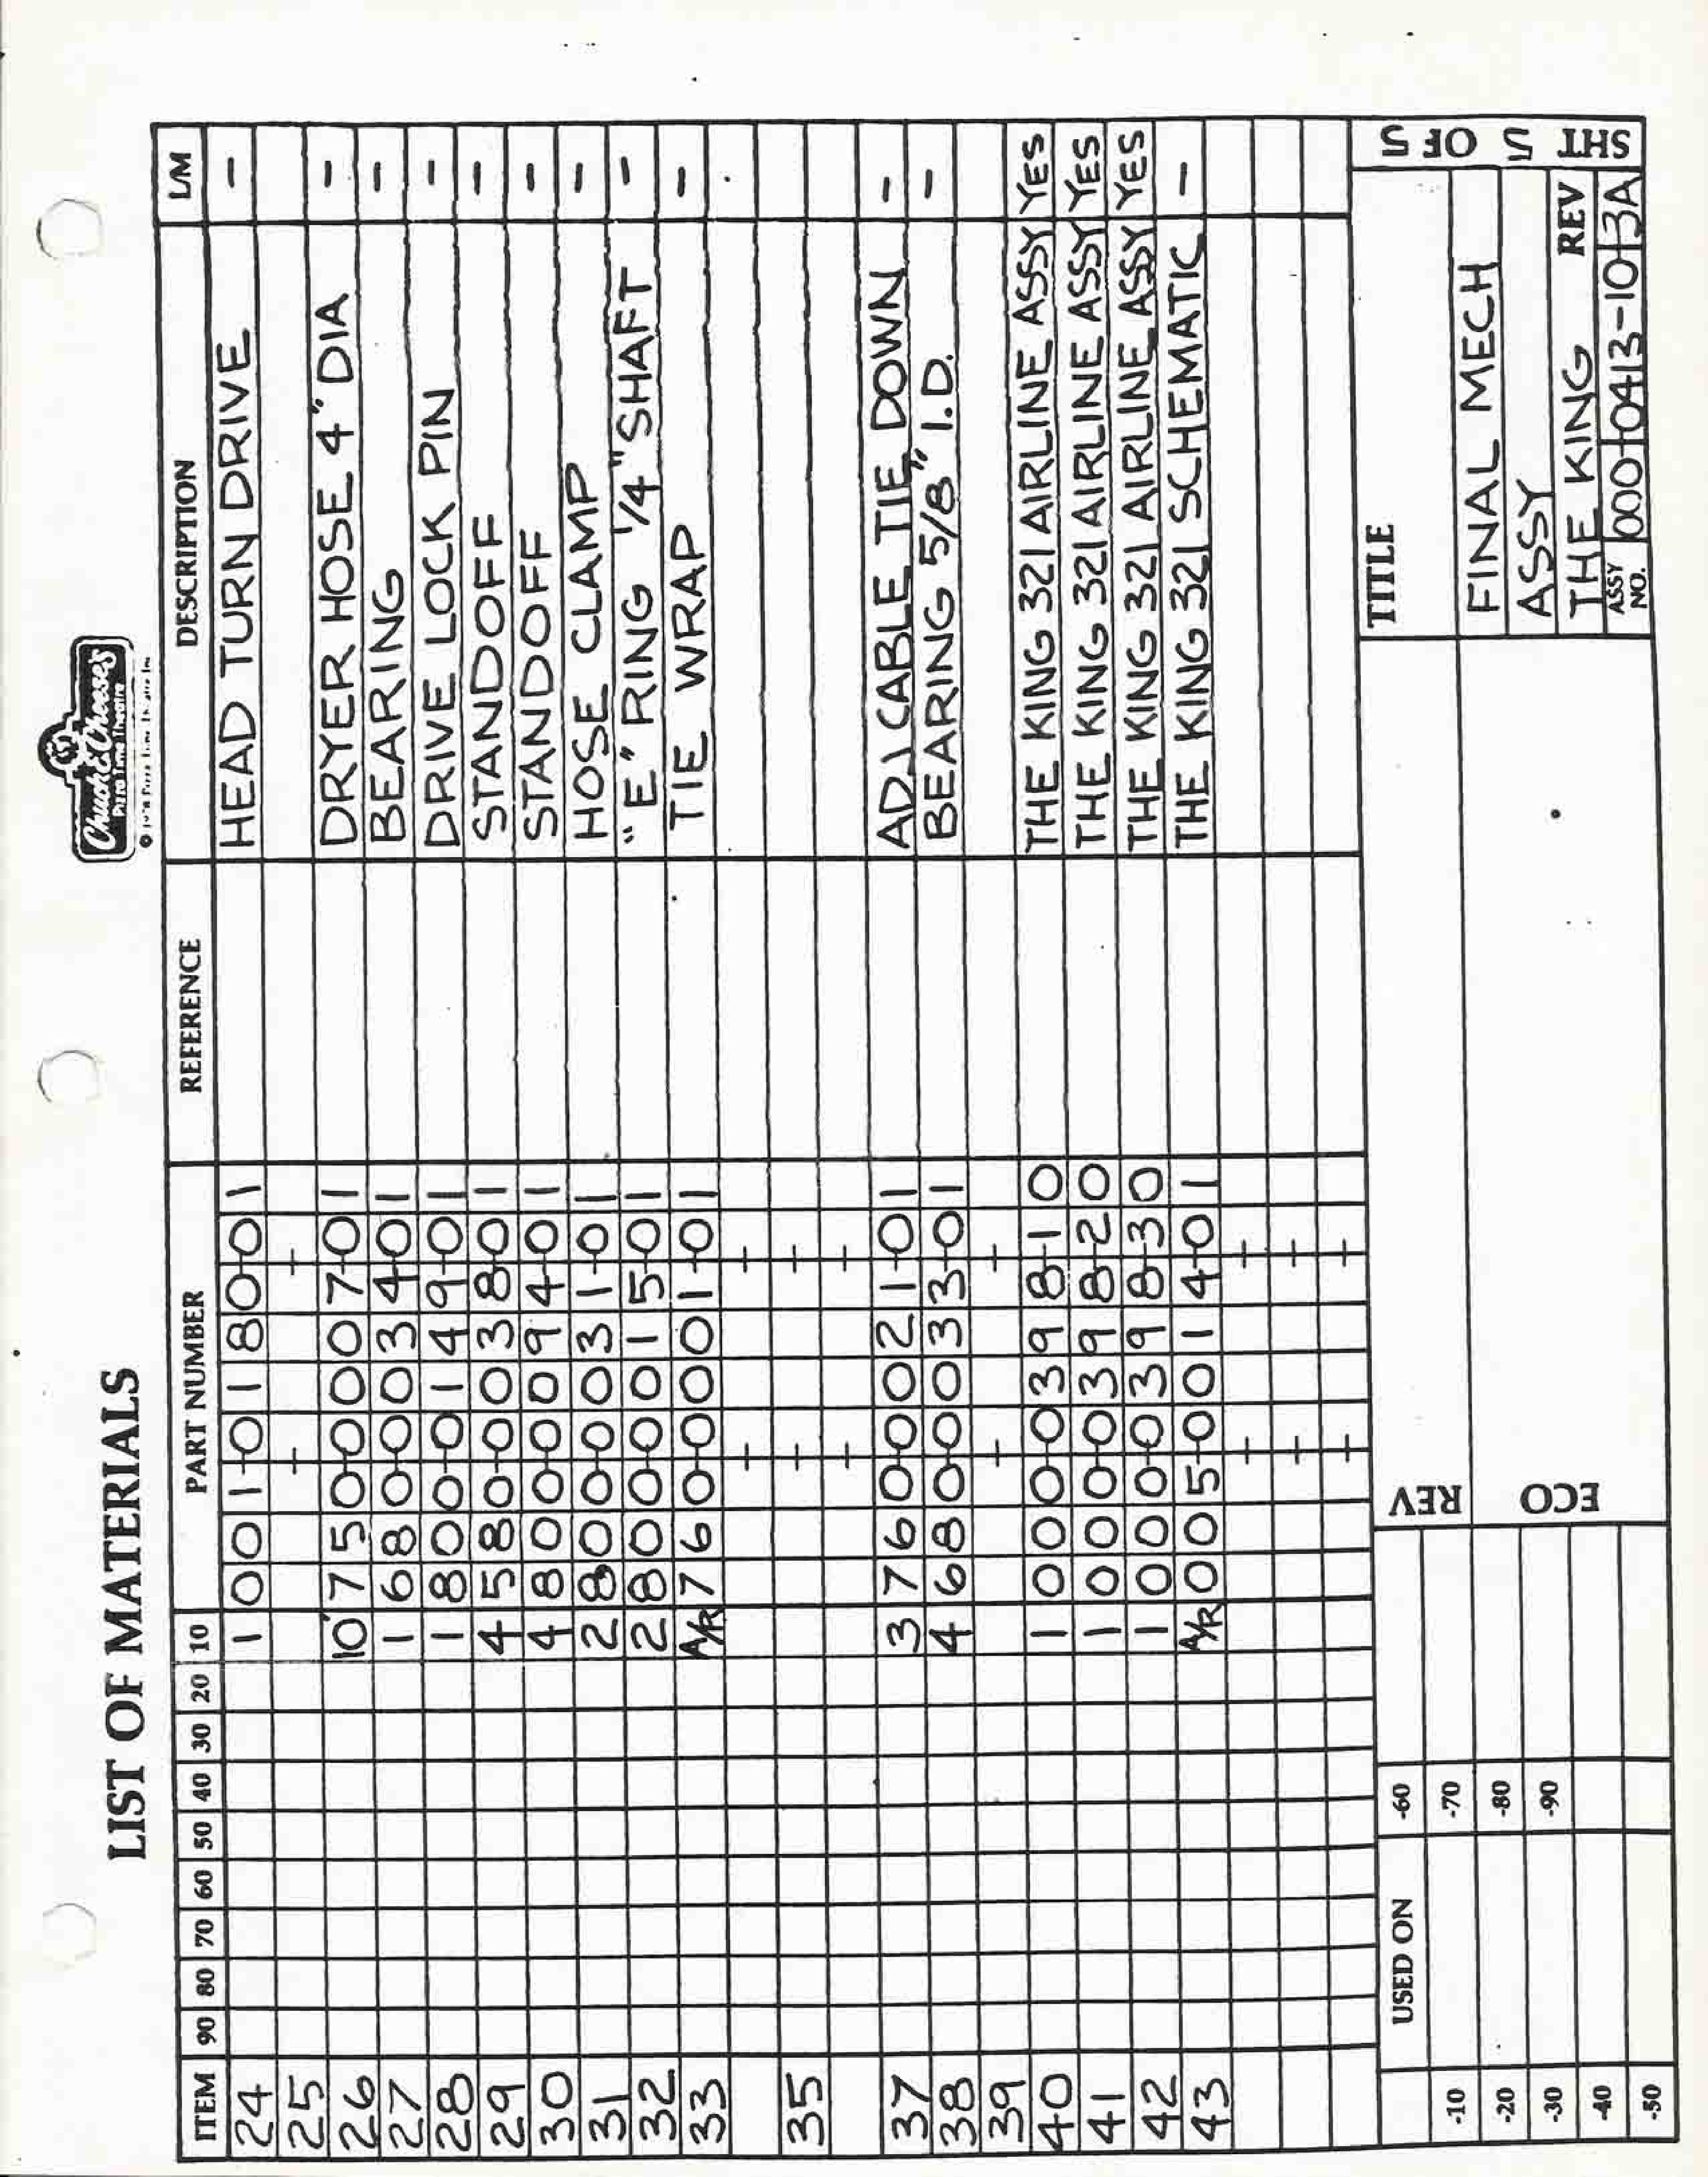 LIST OF MATERIALS
Chuck E. Cheese's
Pizza Time Theatre
ITEM 90 80 70 60 50 40 30 20 10 PART NUMBER REFERENCE DESCRIPTION L/M
24 1 001-0180-01 HEAD TURN DRIVE -
25
26 10' 750-0007-01 DRYER HOSE 4" DIA -
27 1 680-0034-01 BEARING -
28 1 800-0149-01 DRIVE LOCK PIN -
29 4 580-0038-01 STANDOFF -
30 4 800-0094-01 STANDOFF -
31 2 800-0031-01 HOSE CLAMP -
32 2 800-0015-01 "E" RING 1/4" SHAFT -
33 A/R 760-0001-01 TIE WRAP -
35
37 3 760-0021-01 ADJ CABLE TIE DOWN -
38 4 680-0033-01 BEARING 5/8" I.D. -
39
40 1 000-0398-10 THE KING 321 AIRLINE ASSY YES
41 1 000-0398-20 THE KING 321 AIRLINE ASSY YES
42 1 000-0398-30 THE KING 321 AIRLINE ASSY YES
43 A/R 005-0014-01 THE KING 321 SCHEMATIC -
USED ON
-10
-20
-30
-40
-50
-60
-70
-80
-90
REV
ECO
TITLE
FINAL MECH
ASSY
THE KING REV
ASSY NO. 000-0413-10 3A
SHT 5 OF 5